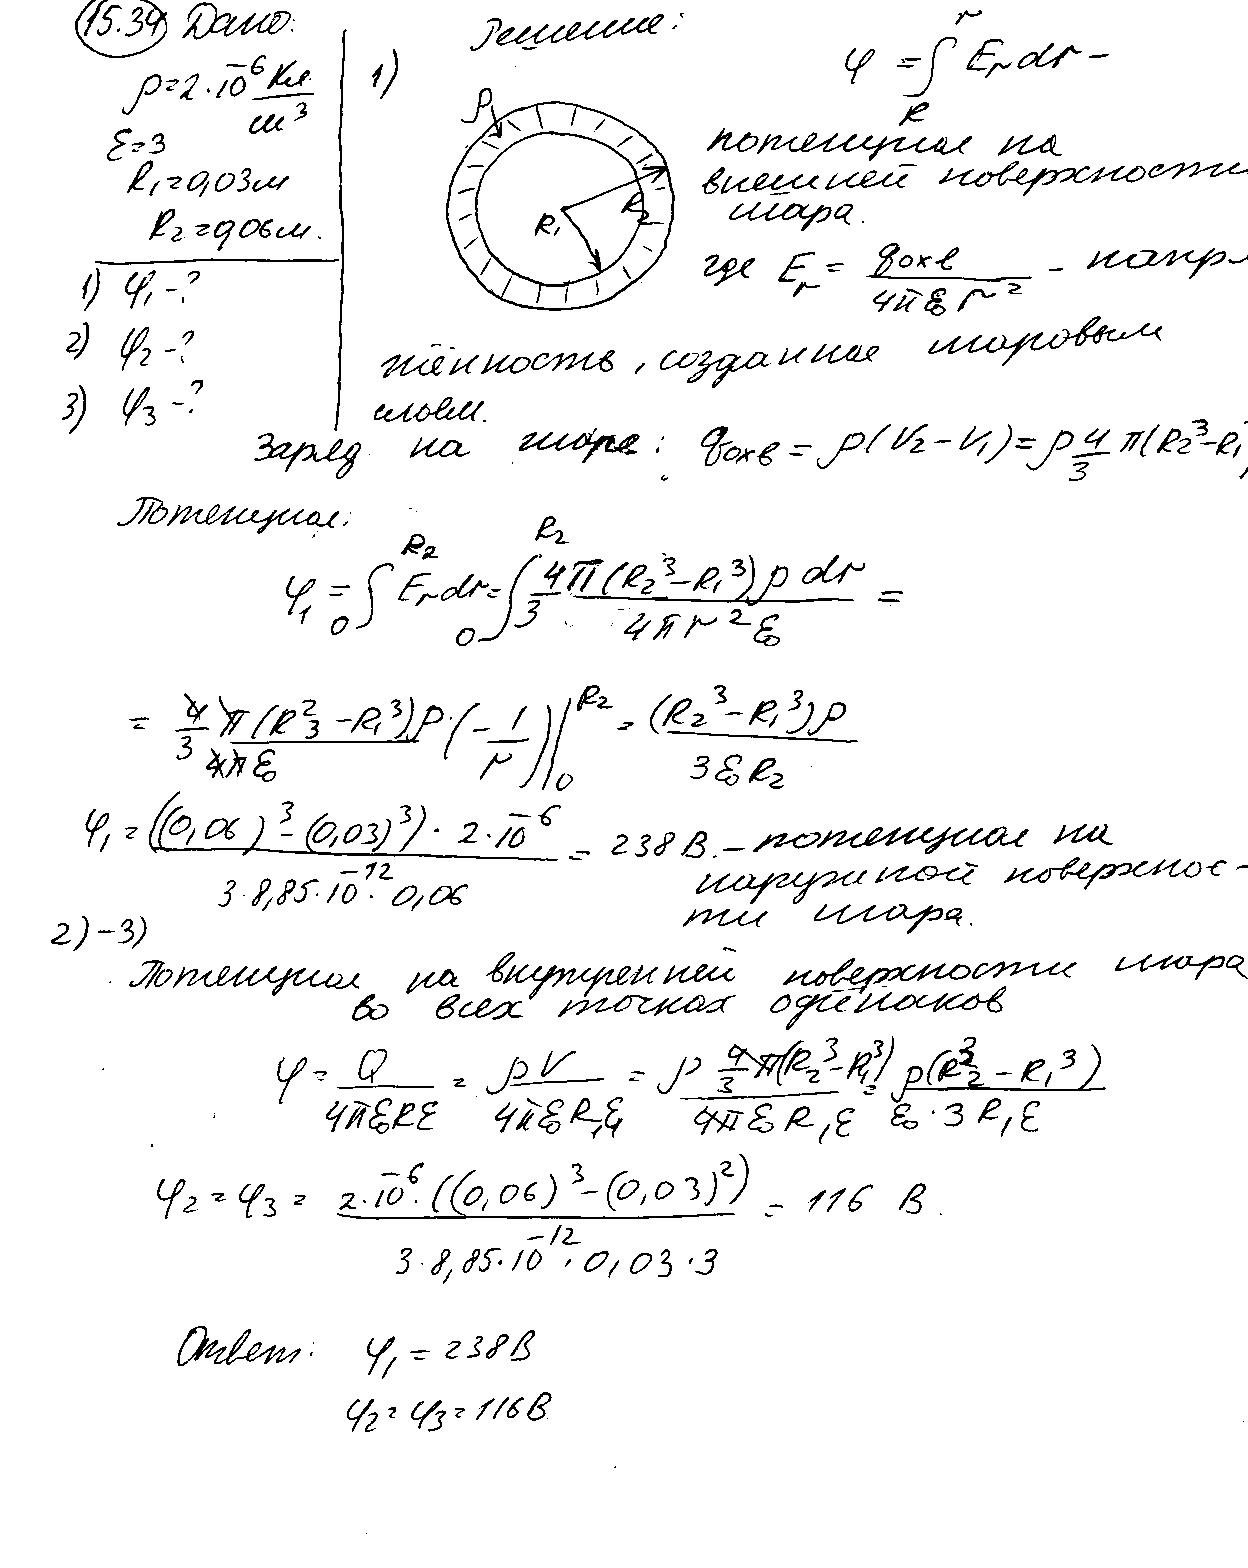 15.34 Дано:
ρ=2·10^-6 Кл/м^3
ε=3
R₁=0,03м
R₂=0,06м.
1) φ₁-?
2) φ₂-?
3) φ₃-?
Решение:
1)
φ = ∫_R^r E_r dr –
потенциал на
внешней поверхности
шара.
ρ
R₁
R₂
где E_r = q охв / 4πε₀r² – напр
жённость, созданная шаровым
слоем.
Заряд на шаре: q охв = ρ(V₂-V₁)=ρ 4/3 π(R₂³-R₁
Потенциал:
φ₁ = ∫_0^R₂ E_r dr = ∫_0^R₂ 4/3 π(R₂³-R₁³)ρ dr / 4πr²ε₀ =
= 4/3 π(R²₃-R₁³)ρ / 4πε₀ · (-1/r)|_0^R₂ = (R₂³-R₁³)ρ / 3ε₀R₂
φ₁ = ((0,06)³-(0,03)³)·2·10^-6 / 3·8,85·10^-12·0,06 = 238 В. – потенциал на
наружной поверхнос-
ти шара.
2)-3)
Потенциал на внутренней поверхности шара
во всех точках одинаков
φ = Q / 4πε₀Rε = ρV / 4πε₀R₁ε₁ = ρ 4/3 π(R₂³-R₁³) / 4πε₀R₁ε = ρ(R₂³-R₁³) / ε₀·3R₁ε
φ₂=φ₃= 2·10^-6·((0,06)³-(0,03)²) / 3·8,85·10^-12·0,03·3 = 116 В.
Ответ: φ₁ = 238В
φ₂=φ₃=116В